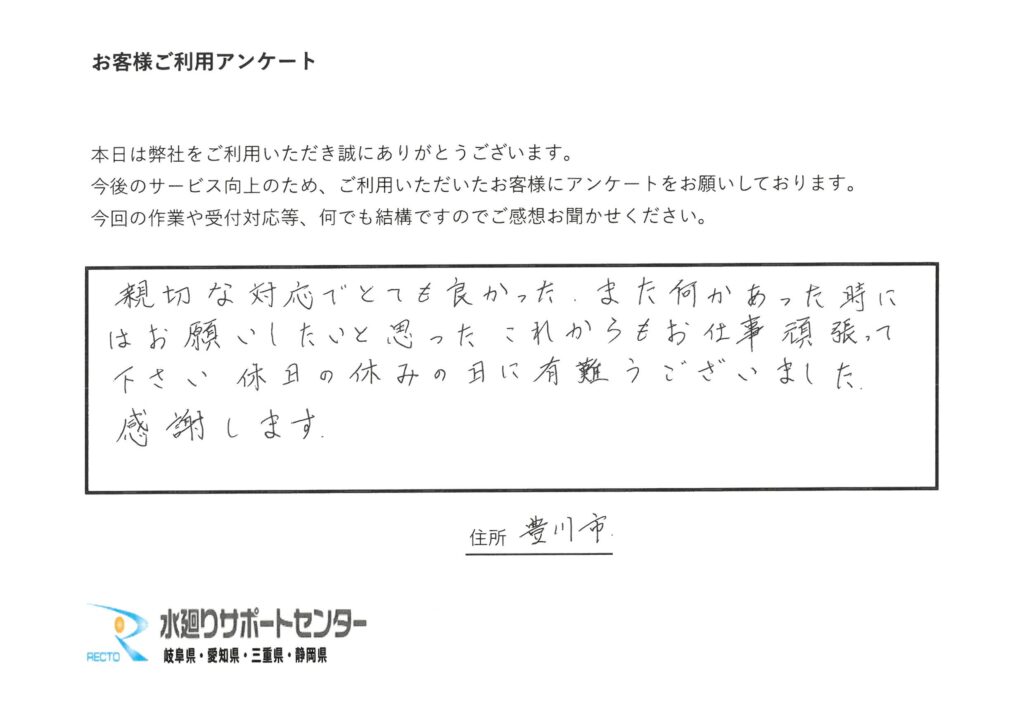 お客様ご利用アンケート
本日は弊社をご利用いただき誠にありがとうございます。
今後のサービス向上のため、ご利用いただいたお客様にアンケートをお願いしております。
今回の作業や受付対応等、何でも結構ですのでご感想お聞かせください。
親切な対応でとても良かった. また何かあった時に
はお願いしたいと思った これからもお仕事頑張って
下さい 休日の休みの日に有難うございました.
感謝します.
住所 豊川市.
水廻りサポートセンター
RECTO 岐阜県・愛知県・三重県・静岡県